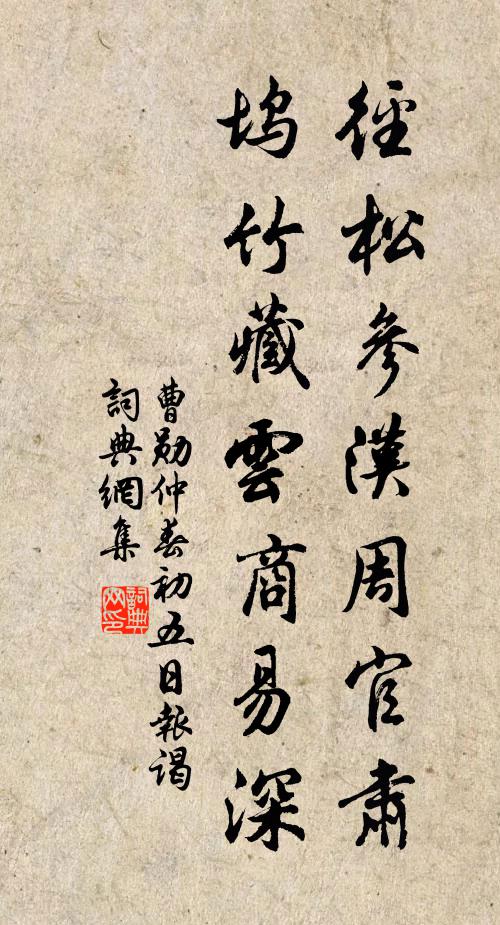 徑松參漢周官肅
塢竹藏雲商易深
曹勛仲春初五日報謁
詞典網集
詞典网印